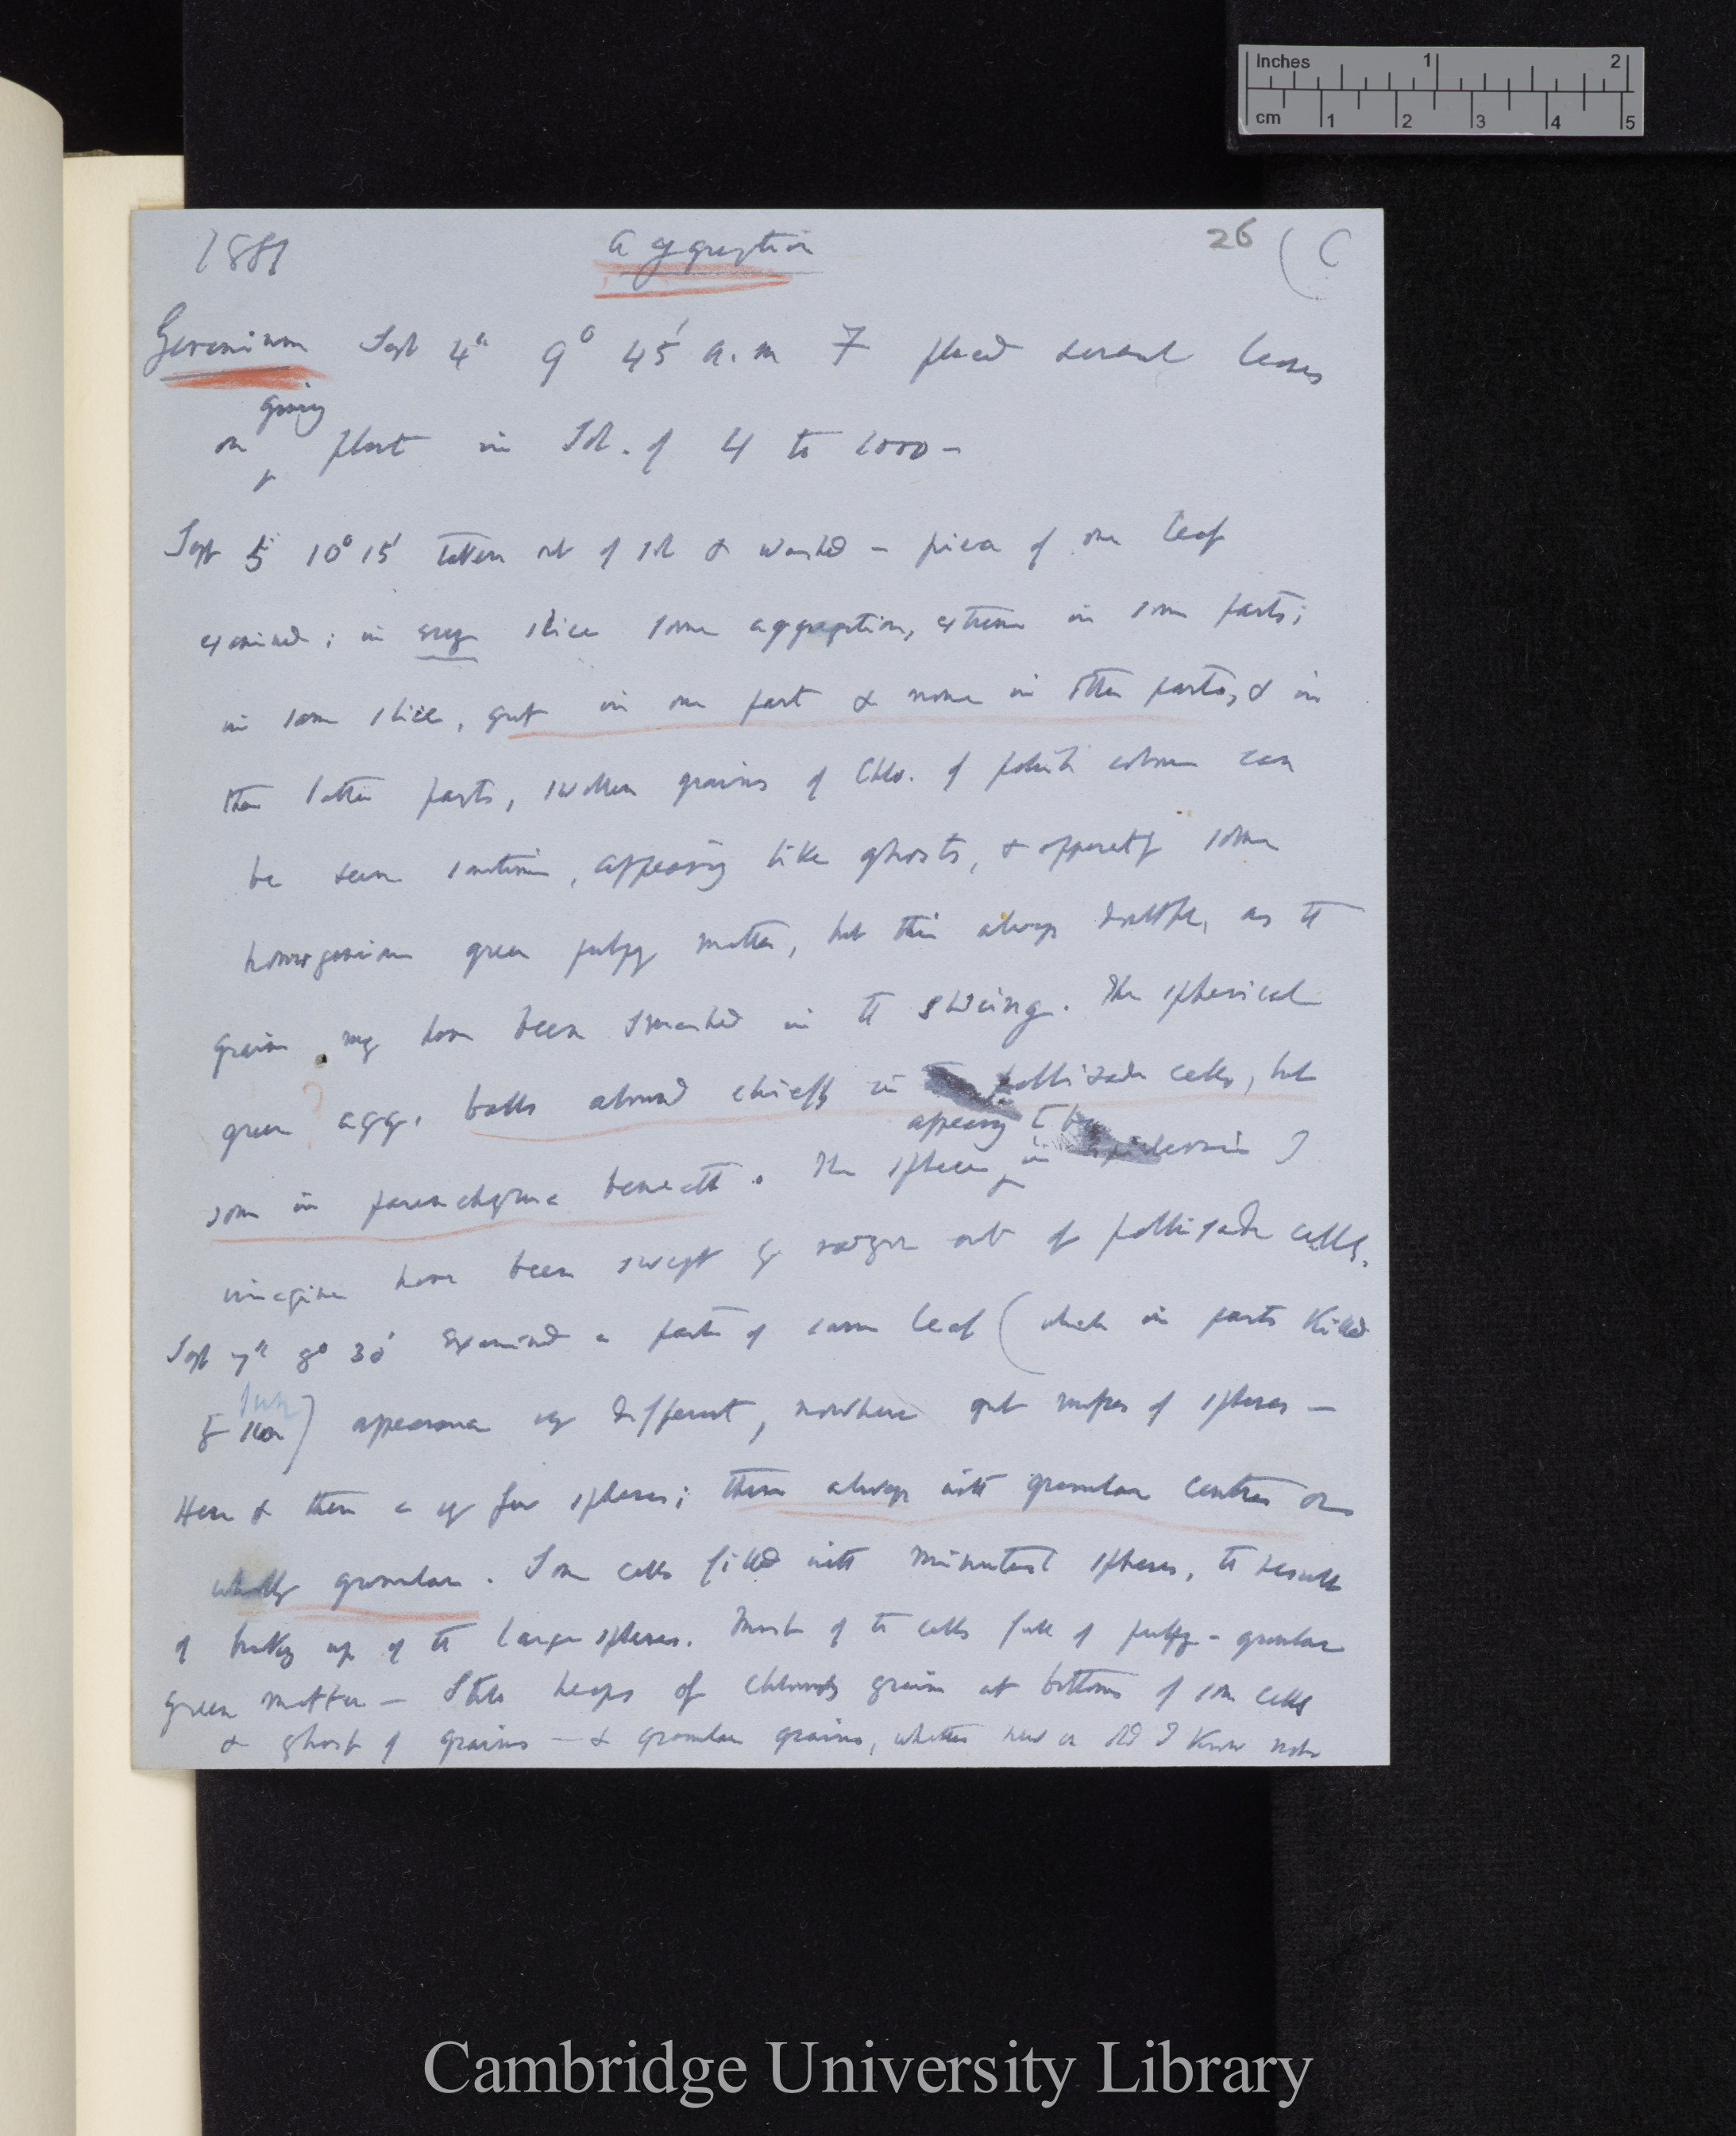 Inches 1 2
cm 1 2 3 4 5
1881 Aggregation 26 (C
Geranium Sept 4th 9° 45' a.m 7 placed several leaves
growing
on plant in Sol. of 4 to 1000 —
Sept 5 10° 15' taken out of sol & washed — piece of one leaf
examined; in every slice some aggregation, extreme in some parts;
in some slices, great in one part & none in other parts, & in
these latter parts, swollen grains of Chlo. of colour can
be seen sometimes, appearing like ghosts, & apparently some
homogeneous green pulpy matter, but this always doubtful, as the
grains may have been smashed in the slicing. The spherical
green agg. balls abound chiefly in pallisade cells, but
appearing to be
some in parenchyma beneath. The spheres in epidermis I
imagine have been swept by razor out of pallisade cells.
Sept 7th 8° 30' Examined a part of same leaf (which in parts killed
by Sun) appearance very different, nowhere great masses of spheres —
Here & there a very few spheres; these always with granular centres or
wholly granular. Some cells filled with minutest spheres, the result
of breaking up of the large spheres. Most of the cells full of pulpy-granular
green matter — Still heaps of grains at bottom of some cells
& ghost of grains — & granular grains, whether new or old I know not
Cambridge University Library